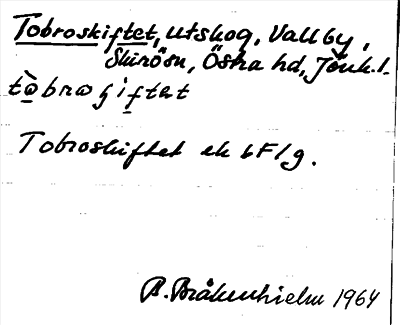 Tobroskiftet, utskog, Vallby,
Skirösn, Östra hd, Jönk. l.
tò̱bra ʃi̱ftet
Tobroskiftet ek bF/g.
B. Bråkenhielm 1964